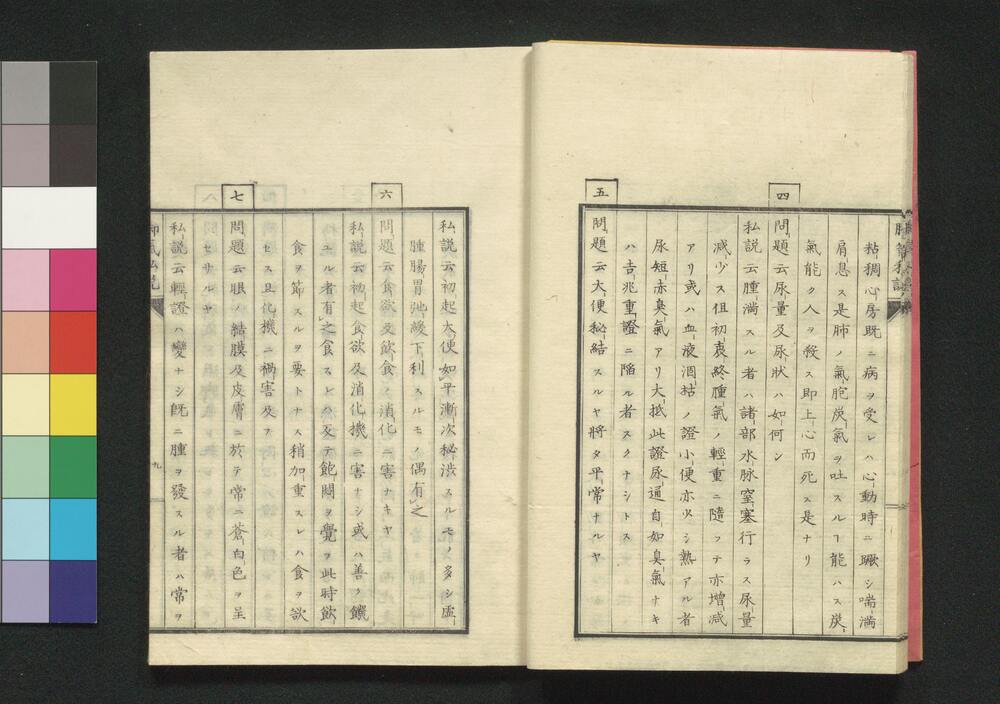 粘稠心房既ニ病ヲ受レハ心動時ニ蹶シ喘滿
肩息ス是肺ノ氣胞炭氣ヲ吐スルヿ能ハス炭
氣能ク人ヲ殺ス即上心而死ス是ナリ
四
問題云尿量及尿狀ハ如何ン
私説云腫滿スル者ハ諸部水脉窒塞行ラス尿量
減少ス但初衷終腫氣ノ輕重ニ隨ッテ亦增減
アリ或ハ血液涸枯ノ證小便亦少シ熱アル者
尿短赤臭氣アリ大抵此證尿通自如臭氣ナキ
ハ吉兆重證ニ陥ル者スクナシトス
五
問題云大便秘結スルヤ將タ平常ナルヤ
私説云初起大便如平漸次秘澁スルモノ多シ虛
腫腸胃弛緩下利スルモノ偶有之
六
問題云食欲及飲食ノ消化ニ害ナキヤ
私説云初起食欲及消化機ニ害ナシ或ハ善ク饑
ユル者有之食スレハ反テ飽悶ヲ覺ヲ此時飲
食ヲ節スルヲ要トナス稍加重スレハ食ヲ欲
セス且化機ニ禍害及フ
七
問題云眼ノ結膜及皮膚ニ於テ常ニ蒼白色ヲ呈
セサルヤ
私説云輕證ハ變ナシ既ニ腫ヲ發スル者ハ常ヲ
九